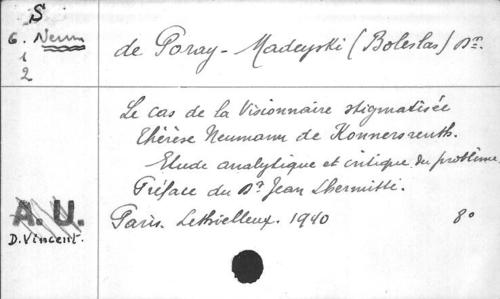 S
G. Neum
1
2
de Poray-Madeyski (Boleslas) Dr.
Le cas de la Visionnaire stigmatisée
Thérèse Neumann de Konnersreuth.
Etude analytique et critique du problème
Préface du Dr Jean Lhermitte.
Paris. Lethielleux. 1940 8o
A. U.
D. Vincent.